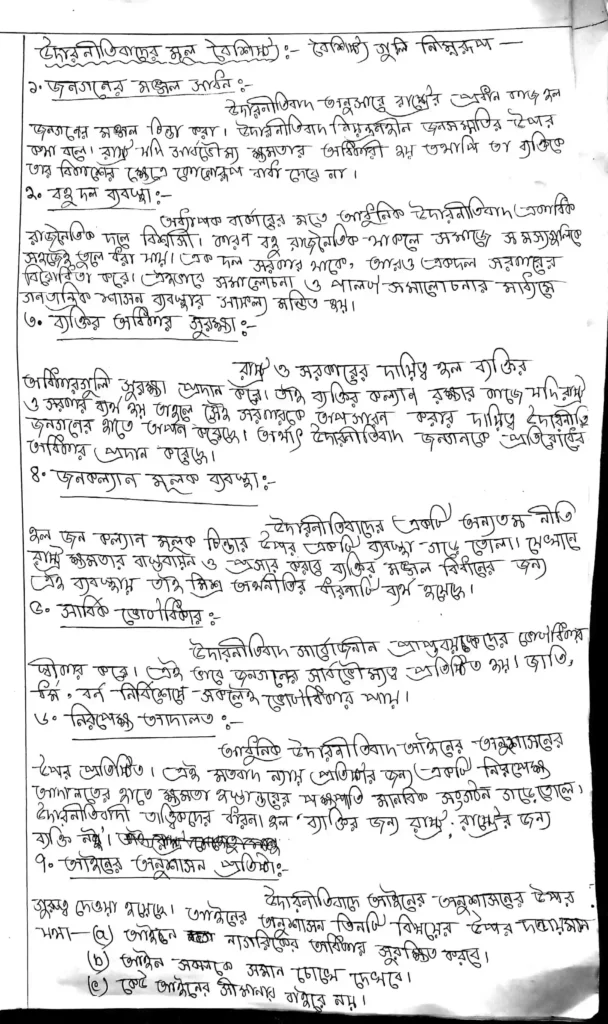 উদারনীতিবাদের মূল বৈশিষ্ট্য:- বৈশিষ্ট্য গুলি নিম্নরূপ —
১. জনগনের মঙ্গল সাধন:-
উদারনীতিবাদ অনুসারে রাষ্ট্রের প্রধান কাজ হল
জনগনের মঙ্গল চিন্তা করা। উদারনীতিবাদ নিয়ন্ত্রনহীন জনসম্মতির উপর
কথা বলে। রাষ্ট্র যদি সার্বভৌম্য ক্ষমতার অধিকারী হয় তথাপি তা ব্যক্তিকে
তার বিকাশের ক্ষেত্রে কোনোরূপ বাধা দেবে না।
২. বহু দল ব্যবস্থা:-
অধ্যাপক বার্কারের মতে আধুনিক উদারনীতিবাদ একাধিক
রাজনৈতিক দলে বিশ্বাসী। কারণ বহু রাজনৈতিক থাকলে সমাজে সমস্যাগুলিকে
সহজেই তুলে ধরা যায়। এক দল সরকার থাকে, আরও একদল সরকারের
বিরোধিতা করে। এইভাবে সমালোচনা ও পাল্টা সমালোচনার মাধ্যমে
গনতান্ত্রিক শাসন ব্যবস্থার সাফল্য মন্ডিত হয়।
৩. ব্যক্তির অধিকার সুরক্ষা:-
রাষ্ট্র ও সরকারের দায়িত্ব হল ব্যক্তির
অধিকারগুলি সুরক্ষা প্রদান করে। তাই ব্যক্তির কল্যান রক্ষার কাজে যদি রাষ্ট্র
ও সরকার ব্যর্থ হয় তাহলে সেই সরকারকে অপসারন করার দায়িত্ব উদারনীতি
জনগনের হাতে অর্পন করেছে। অর্থাৎ উদারনীতিবাদ জনগনকে প্রতিরোধের
অধিকার প্রদান করেছে।
৪. জনকল্যান মূলক ব্যবস্থা:-
উদারনীতিবাদের একটি অন্যতম নীতি
হল জন কল্যান মূলক চিন্তার উপর একটি ব্যবস্থা গড়ে তোলা। যেখানে
রাষ্ট্র ক্ষমতার বাস্তবায়ন ও প্রসার করবে ব্যক্তির মঙ্গল বিধানের জন্য
এই ব্যবস্থায় তাই মিশ্র অর্থনীতির ধারনাটি ব্যর্থ হয়েছে।
৫. সার্বিক ভোটাধিকার:-
উদারনীতিবাদ সার্বজনীন প্রাপ্তবয়স্কদের ভোটাধিকার
স্বীকার করে। এই ভাবে জনগনের সার্বভৌম্যত্ব প্রতিষ্ঠিত হয়। জাতি,
ধর্ম, বর্ন নির্বিশেষে সকলেই ভোটাধিকার পায়।
৬. নিরপেক্ষ আদালত:-
আধুনিক উদারনীতিবাদ আইনের অনুশাসনের
উপর প্রতিষ্ঠিত। এই মতবাদ ন্যায় প্রতিষ্ঠার জন্য একটি নিরপেক্ষ
আদালতের হাতে ক্ষমতা হস্তান্তরের পক্ষপাতি মানবিক সংগঠন গড়ে তোলে।
উদারনীতিবাদী তাত্ত্বিকদের ধারনা হল ব্যাক্তির জন্য রাষ্ট্র, রাষ্ট্রের জন্য
ব্যক্তি নয়।
৭. আইনের অনুশাসন প্রতিষ্ঠা:-
উদারনীতিবাদে আইনের অনুশাসনের উপর
গুরুত্ব দেওয়া হয়েছে। আইনের অনুশাসন তিনটি বিষয়ের উপর দন্ডায়মান
যথা— (a) আইন নাগরিকের অধিকার সুরক্ষিত করবে।
(b) আইন সকলকে সমান চোখে দেখবে।
(c) কেউ আইনের সীমানার বাইরে নয়।